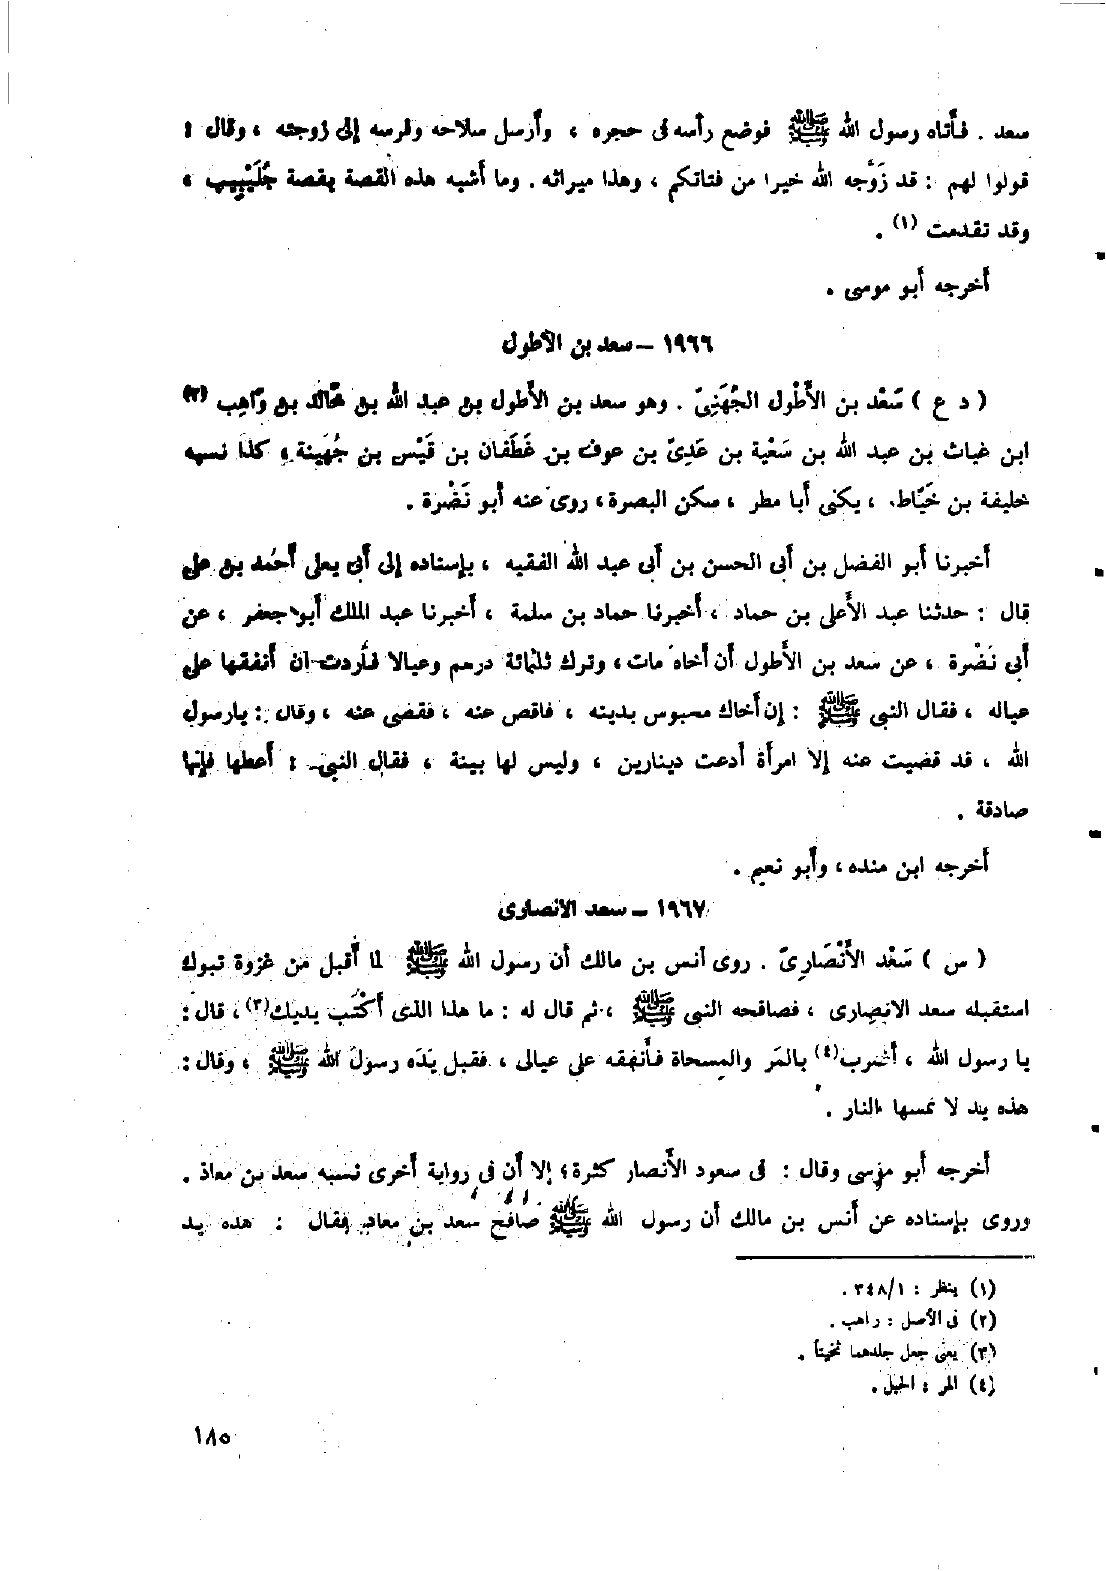 سعد . فأتاه رسول الله ﷺ فوضع رأسه فى حجره ، وأرسل سلاحه وفرسه إلى زوجته ، وقال :
قولوا لهم : قد زَوَّجه الله خيرا من فتاتكم ، وهذا ميراثه . وما أشبه هذه القصة بقصة جُلَيْبِيب ،
وقد تقدمت (١) .
أخرجه أبو موسى .
١٩٦٦ – سعد بن الأطول
( د ع ) سَعْد بن الأَطْول الجُهَنِىّ . وهو سعد بن الأطول بن عبد الله بن خالد بن وَاهِب (٢)
ابن غياث بن عبد الله بن سَعْية بن عَدِىّ بن عوف بن غَطَفان بن قَيْس بن جُهَينة ، كذا نسبه
خليفة بن خَيّاط ، يكنى أبا مطر ، سكن البصرة ، روى عنه أبو نَضْرة .
أخبرنا أبو الفضل بن أبى الحسن بن أبى عبد الله الفقيه ، بإسناده إلى أبى يعلى أحمد بن على
قال : حدثنا عبد الأعلى بن حماد ، أخبرنا حماد بن سلمة ، أخبرنا عبد الملك أبو جعفر ، عن
أبى نَضْرة ، عن سعد بن الأطول أن أخاه مات ، وترك ثلثمائة درهم وعيالا فأردت ان أنفقها على
عياله ، فقال النبى ﷺ : إن أخاك محبوس بدينه ، فاقص عنه ، فقضى عنه ، وقال : يارسول
الله ، قد قضيت عنه إلا امرأة أدعت دينارين ، وليس لها بينة ، فقال النبى : أعطها فإنها
صادقة .
أخرجه ابن منده ، وأبو نعيم .
١٩٦٧ – سعد الانصارى
( س ) سَعْد الأَنْصَارِىّ . روى أنس بن مالك أن رسول الله ﷺ لما أقبل من غزوة تبوك
استقبله سعد الانصارى ، فصافحه النبى ﷺ ، ثم قال له : ما هذا الذى أَكْتَب يديك (٣) ، قال :
يا رسول الله ، أضرب (٤) بالمَر والمِسحاة فأنفقه على عيالى ، فقبل يَدَه رسول الله ﷺ ، وقال :
هذه يد لا تمسها النار .
أخرجه أبو موسى وقال : فى سعود الأنصار كثرة ؛ إلا أن فى رواية أخرى نسبه سعد بن معاذ .
وروى بإسناده عن أنس بن مالك أن رسول الله ﷺ صافح سعد بن معاذ فقال : هذه يد
(١) ينظر : ٣٤٨/١ .
(٢) فى الأصل : راهب .
(٣) يعنى جعل جلدهما ثخينا .
(٤) المر : الحبل .
١٨٥